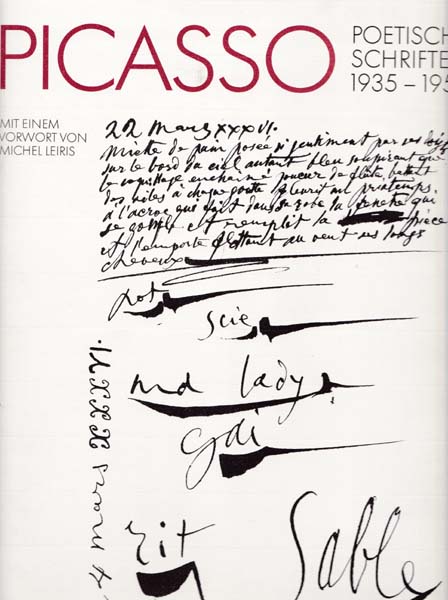 PICASSO
POETISCH
SCHRIFTE
1935 – 195
MIT EINEM
VORWORT VON
MICHEL LEIRIS
22 mars XXXVI.
miette de pain posée si gentiment par ses doigts
sur le bord du ciel autant bleu soupirant que
le coquillage enchainé joueur de flûte battant
des ailes à chaque goutte fleurit au printemps
à l'accroc que fait dans sa robe la fenêtre qui
se gonfle et remplit la pièce
et l'emporte flottant au vent ses longs
cheveux
scie
lady
gai
rit
Sable
4 mars XXXVI.